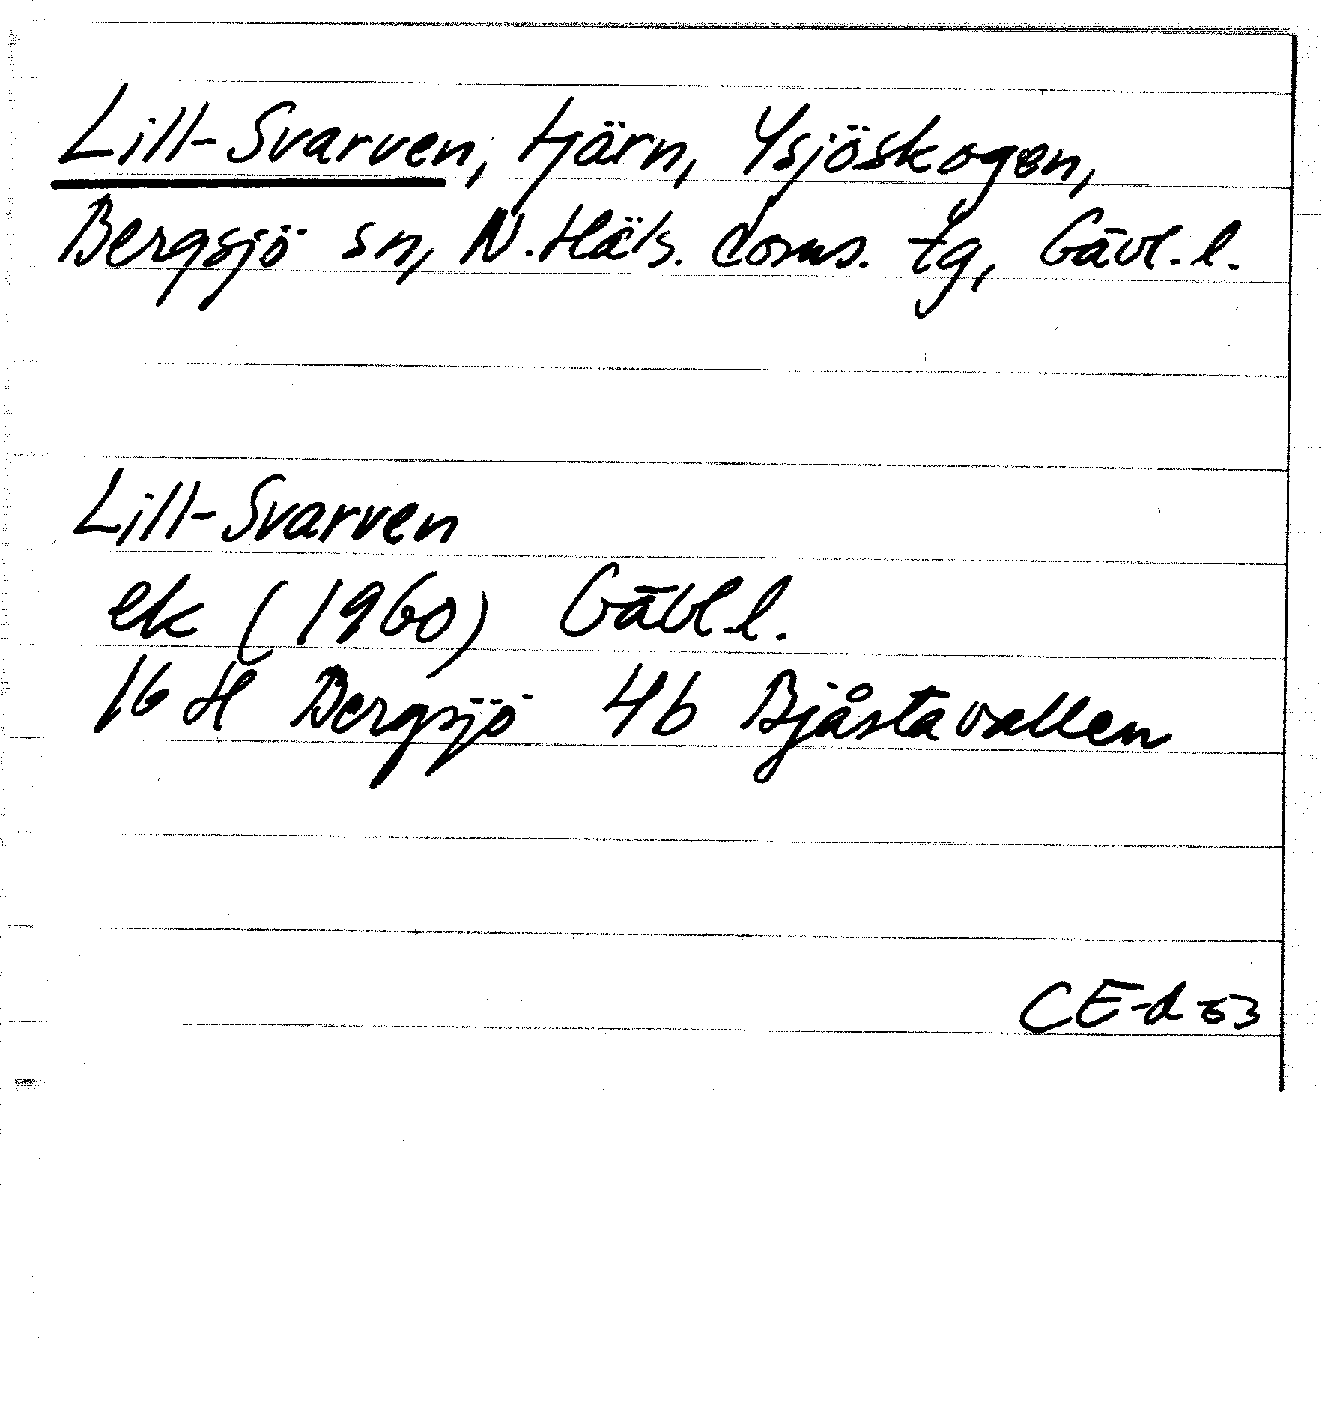 Lill-Svarven, tjärn, Ysjöskogen,
Bergsjö sn, N. Häls. doms. tg, Gävl. l.
Lill-Svarven
ek (1960) Gävl. l.
16 H Bergsjö 4b Bjåstavallen
CE-d-63